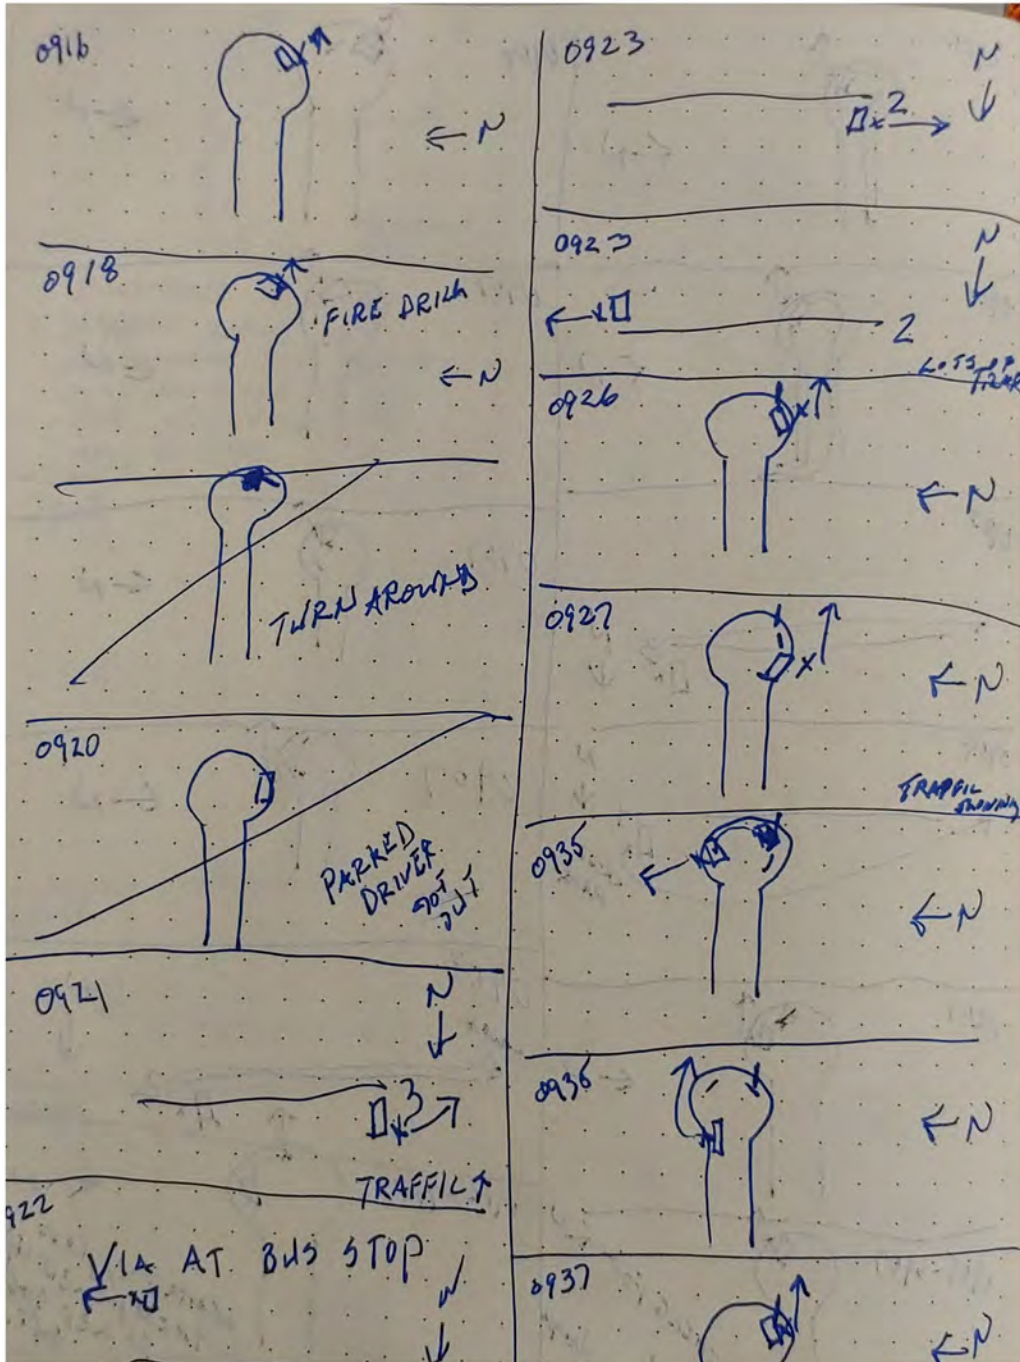 0916
← N
0918
FIRE DRILL
← N
TURN AROUND
0920
PARKED
DRIVER
GOT
OUT
0921
N
3
TRAFFIC ↑
922
VIA AT BUS STOP
N
0923
N
x 2
0923
N
2
LOTS OF
0926
x
← N
0927
x
← N
TRAFFIC
0935
← N
0936
← N
0937
← N